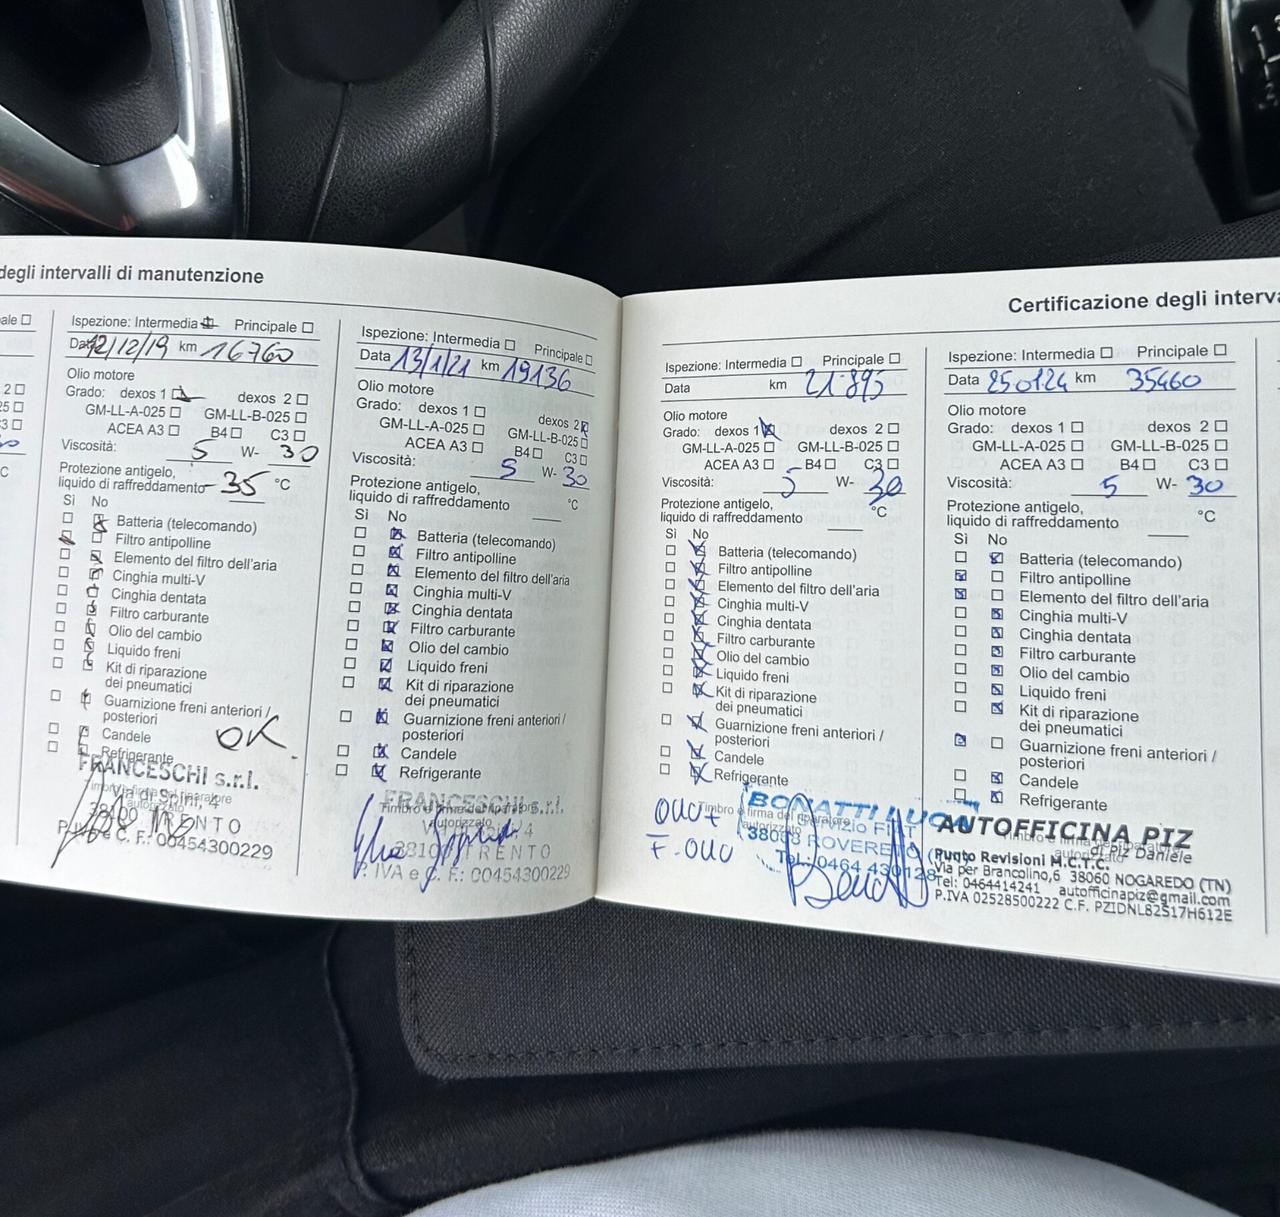 degli intervalli di manutenzione
ale
2
25
3
°C
Ispezione: Intermedia Principale
Data 12/12/19 km 16760
Olio motore
Grado: dexos 1 dexos 2
GM-LL-A-025 GM-LL-B-025
ACEA A3 B4 C3
Viscosità: 5 W- 30
Protezione antigelo,
liquido di raffreddamento -35 °C
Sì No
Batteria (telecomando)
Filtro antipolline
Elemento del filtro dell'aria
Cinghia multi-V
Cinghia dentata
Filtro carburante
Olio del cambio
Liquido freni
Kit di riparazione
dei pneumatici
Guarnizione freni anteriori /
posteriori
Candele OK
Refrigerante
FRANCESCHI s.r.l.
Via di Spini, 4
TRENTO
P. IVA e C. F.: 00454300229
Ispezione: Intermedia Principale
Data 13/1/21 km 19136
Olio motore
Grado: dexos 1 dexos 2
GM-LL-A-025 GM-LL-B-025
ACEA A3 B4 C3
Viscosità: 5 W- 30
Protezione antigelo,
liquido di raffreddamento °C
Sì No
Batteria (telecomando)
Filtro antipolline
Elemento del filtro dell'aria
Cinghia multi-V
Cinghia dentata
Filtro carburante
Olio del cambio
Liquido freni
Kit di riparazione
dei pneumatici
Guarnizione freni anteriori /
posteriori
Candele
Refrigerante
FRANCESCHI s.r.l.
Timbro e firma del riparatore
autorizzato
4
TRENTO
P. IVA e C. F.: 00454300229
Certificazione degli interv
Ispezione: Intermedia Principale
Data km 21895
Olio motore
Grado: dexos 1 dexos 2
GM-LL-A-025 GM-LL-B-025
ACEA A3 B4 C3
Viscosità: 5 W- 30
Protezione antigelo,
liquido di raffreddamento °C
Sì No
Batteria (telecomando)
Filtro antipolline
Elemento del filtro dell'aria
Cinghia multi-V
Cinghia dentata
Filtro carburante
Olio del cambio
Liquido freni
Kit di riparazione
dei pneumatici
Guarnizione freni anteriori /
posteriori
Candele
Refrigerante
Timbro e firma del riparatore
autorizzato
BONATTI LUCA
Servizio FIAT
38068 ROVERETO
Tel. 0464 430128
Ispezione: Intermedia Principale
Data 250124 km 35460
Olio motore
Grado: dexos 1 dexos 2
GM-LL-A-025 GM-LL-B-025
ACEA A3 B4 C3
Viscosità: 5 W- 30
Protezione antigelo,
liquido di raffreddamento °C
Sì No
Batteria (telecomando)
Filtro antipolline
Elemento del filtro dell'aria
Cinghia multi-V
Cinghia dentata
Filtro carburante
Olio del cambio
Liquido freni
Kit di riparazione
dei pneumatici
Guarnizione freni anteriori /
posteriori
Candele
Refrigerante
AUTOFFICINA PIZ
di Piz Daniele
Punto Revisioni M.C.T.C.
Via per Brancolino,6 38060 NOGAREDO (TN)
Tel: 0464414241 autofficinapiz@gmail.com
P.IVA 02528500222 C.F. PZIDNL82S17H612E